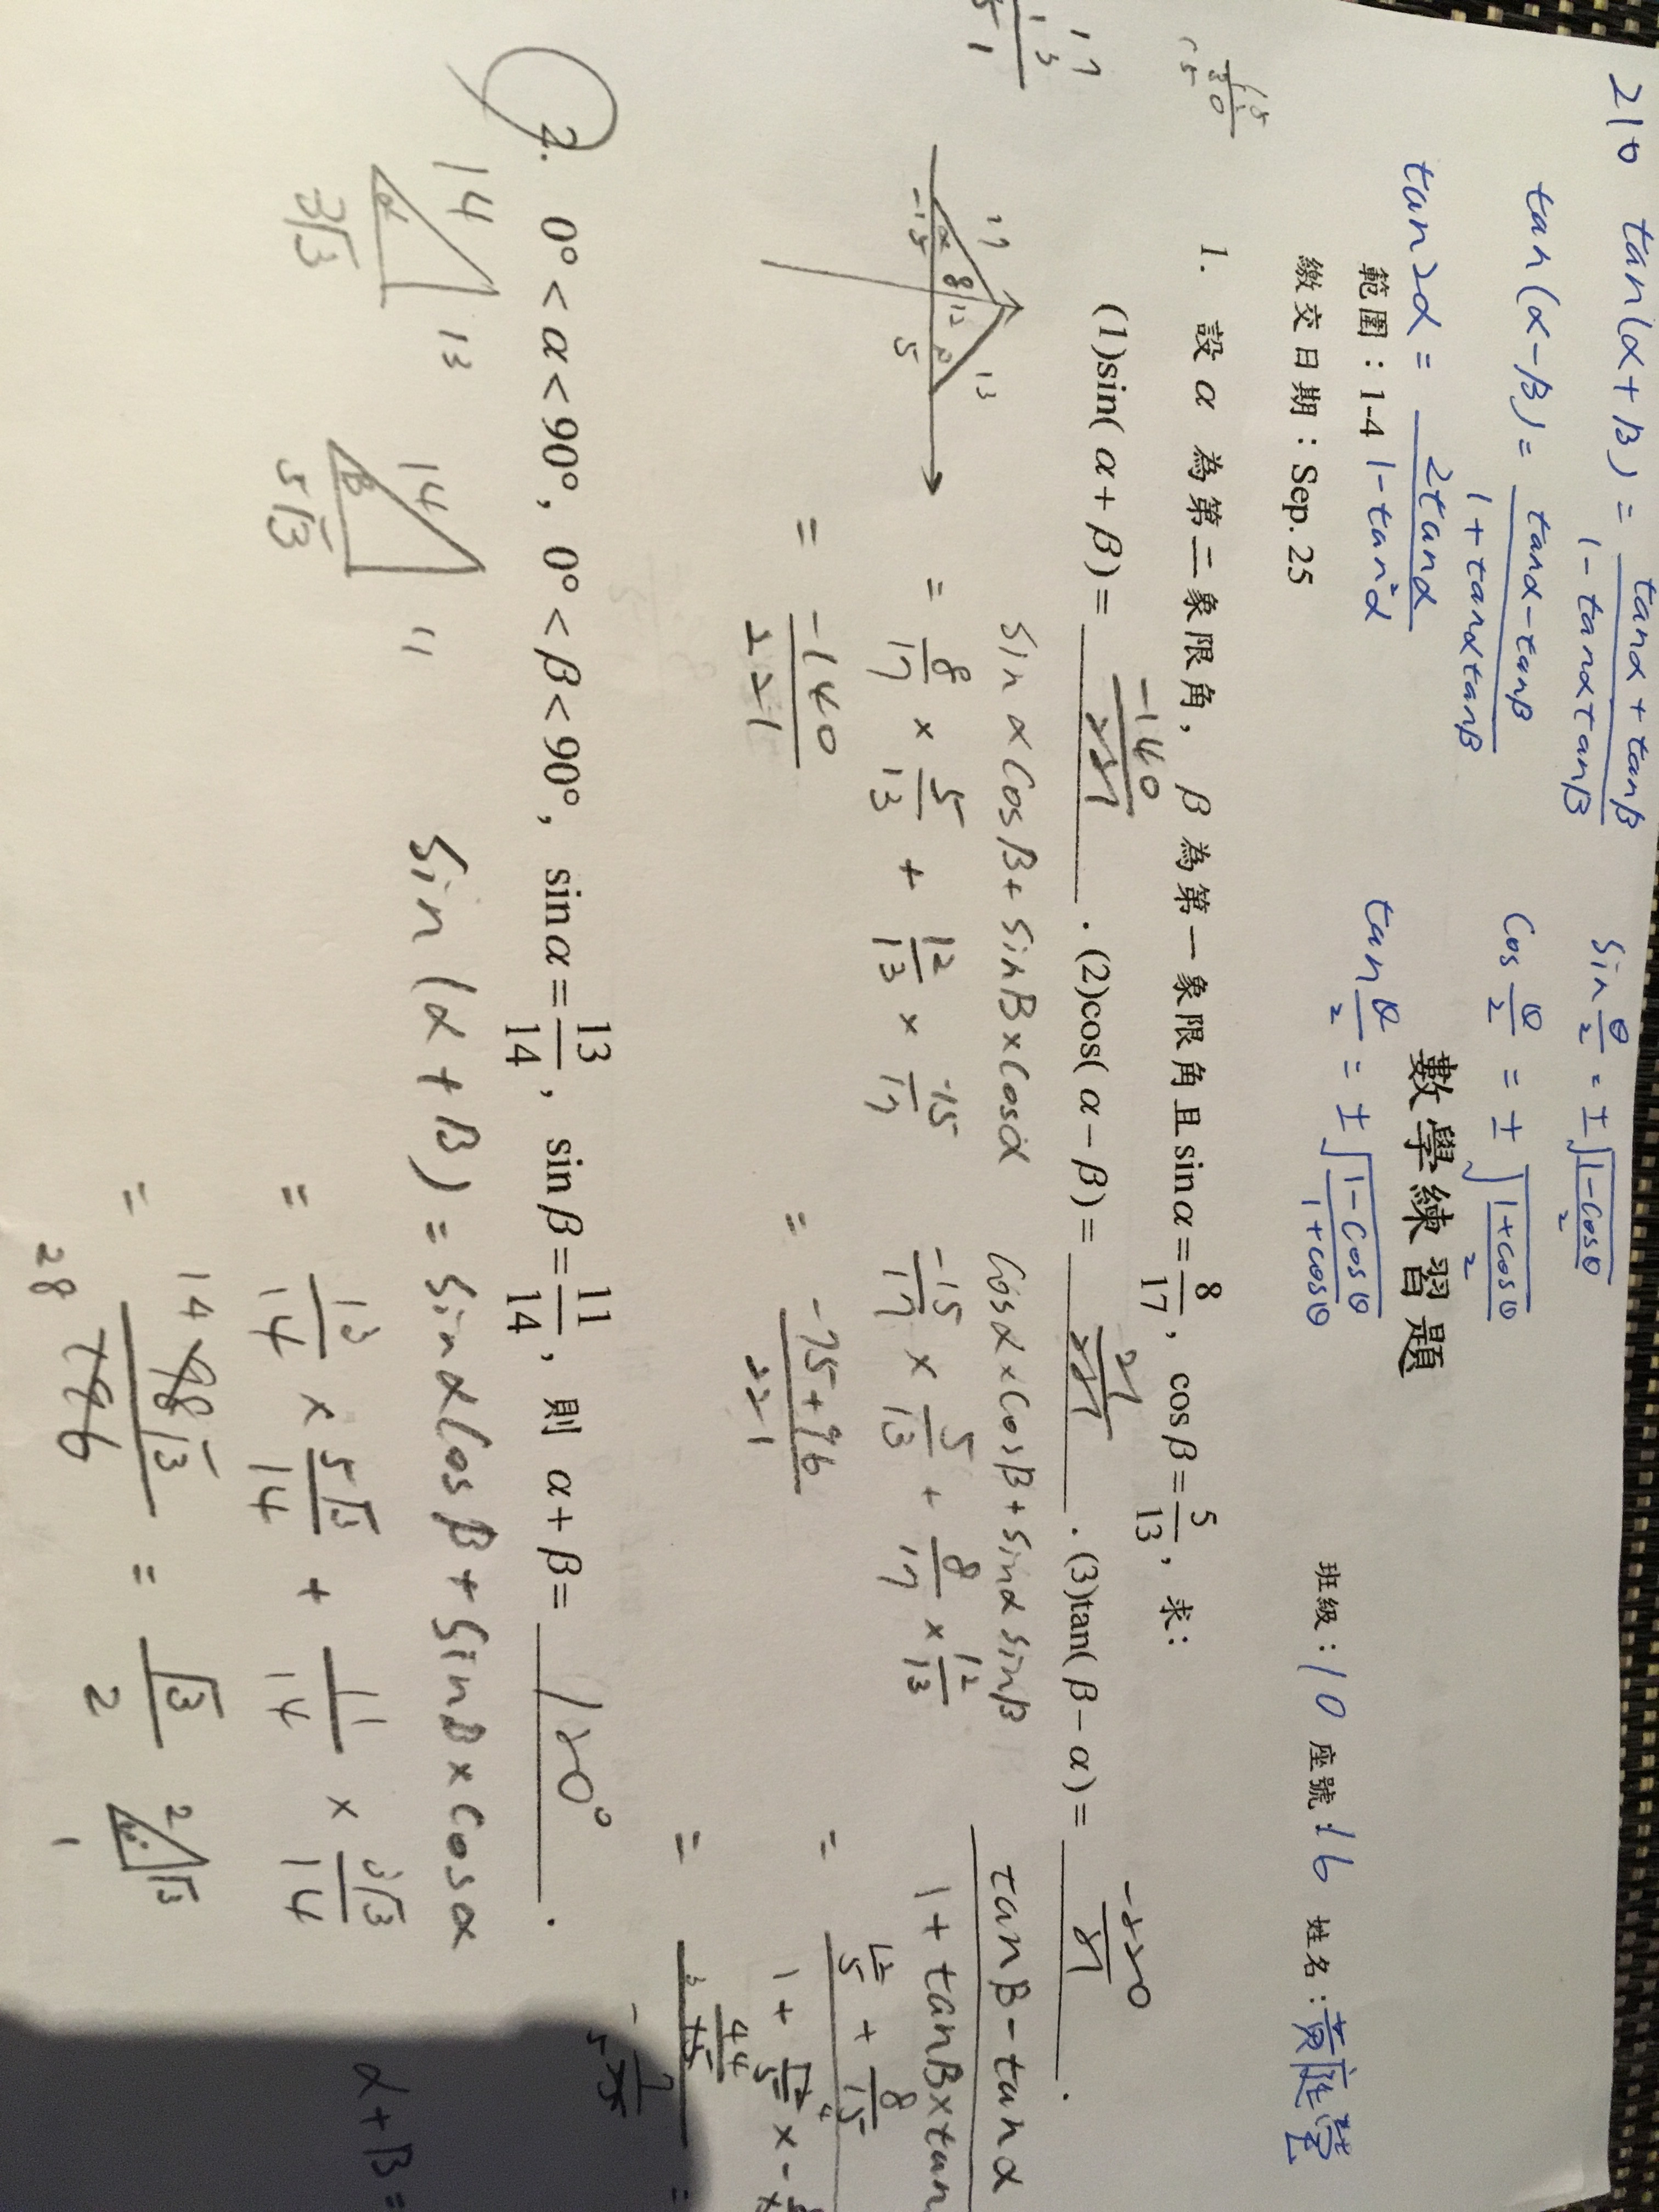 210 tan(α+β) = (tanα+tanβ)/(1-tanαtanβ)
sin θ/2 = ±√((1-cosθ)/2)
tan(α-β) = (tanα-tanβ)/(1+tanαtanβ)
cos θ/2 = ±√((1+cosθ)/2)
tan2α = 2tanα/(1-tan²α)
tan θ/2 = ±√((1-cosθ)/(1+cosθ))
數學練習題
範圍：1-4
繳交日期：Sep. 25
班級：10 座號:16 姓名：
1. 設 α 為第二象限角， β 為第一象限角且 sin α = 8/17， cos β = 5/13，求：
(1)sin( α + β ) = -140/221 . (2)cos( α − β ) = 21/221 . (3)tan( β − α ) = -220/21 .
17 8 -15 α 12 13 5
sinαcosβ+sinβ×cosα
= 8/17 × 5/13 + 12/13 × -15/17
= -140/221
cosα×cosβ+sinα sinβ
-15/17 × 5/13 + 8/17 × 12/13
= (-75+96)/221
tanβ-tanα
1+tanβ×tan
= 12/5 + 8/15
1+ 12/5 × -
= 44/15
2. 0° < α < 90°， 0° < β < 90°， sin α = 13/14， sin β = 11/14，則 α + β = 120° .
14 13 α 3√3
14 11 β 5√3
sin(α+β) = sinαcosβ+sinβ×cosα
= 13/14 × 5√3/14 + 11/14 × 3√3/14
= 98√3/196 = √3/2
14
28
2 √3 1
α+β=